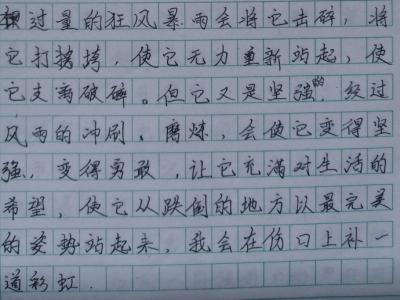 过量的狂风暴雨会将它击碎，将
它打搞垮，使它无力重新站起，使
它支离破碎。但它又是坚强的，经过
风雨的冲刷、磨炼，会使它变得坚
强，变得勇敢，让它充满对生活的
希望，使它从跌倒的地方以最完美
的姿势站起来，我会在伤口上补一
道彩虹.